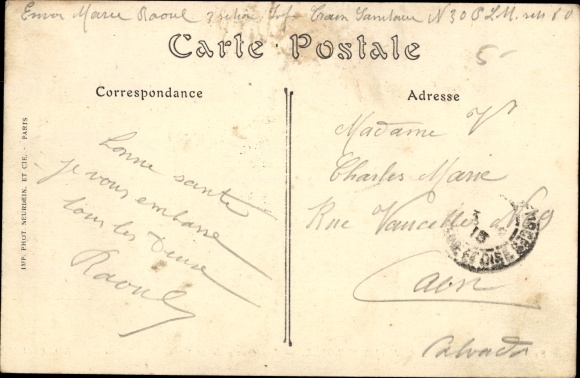 Envoi Marie Raoul 3 section Inf Train Sanitaire N 30 P.L.M.
Carte Postale
5
Correspondance
Adresse
bonne santé
je vous embrasse
tous les deux
Raoul
Madame Vᵉ
Charles Marie
Rue Vaucelles N 9
Caen
Calvados
15
ET OISE
IMP. PHOT. NEURDEIN ET CIE. - PARIS